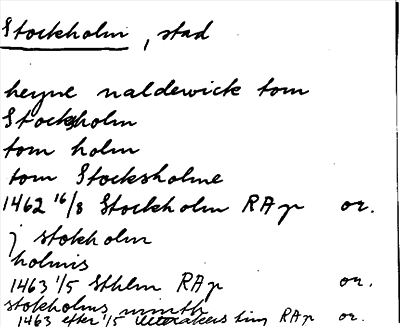 Stockholm, stad
heyne naldewick tom
Stocksholm
tom holm
tom Stocksholme
1462 16/8 Stockholm RAp or.
j stokholm
holmis
1463 1/5 Sthlm RAp or.
stokholms
1463 efter 1/5 RAp or.